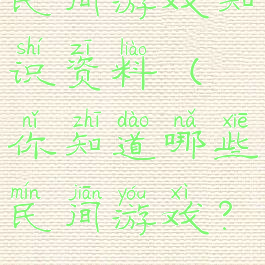 民间游戏知
shí zī liào
识资料（
nǐ zhī dào nǎ xiē
你知道哪些
mín jiān yóu xì
民间游戏？